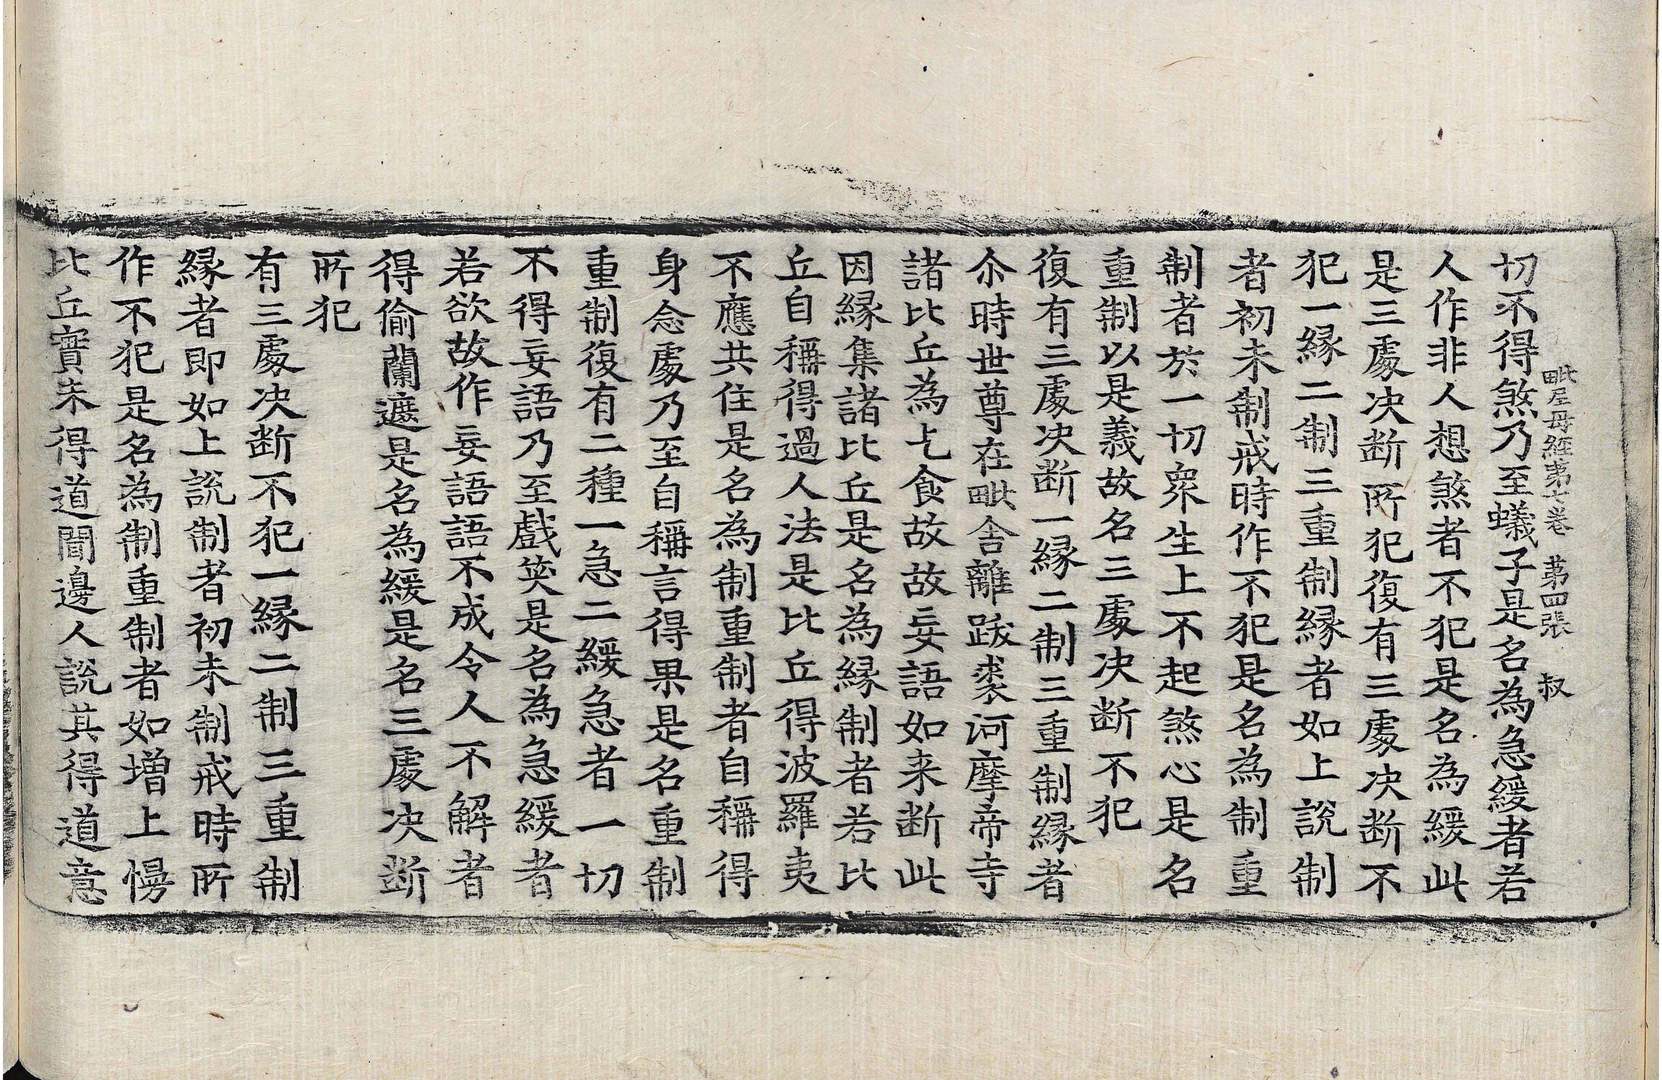 毗尼母經第七卷　第四張　叔
切不得煞乃至蟻子是名為急緩者若
人作非人想煞者不犯是名為緩此
是三處决断所犯復有三處决断不
犯一縁二制三重制縁者如上說制
者初未制戒時作不犯是名為制重
制者於一切衆生上不起煞心是名
重制以是義故名三處决断不犯
復有三處决断一縁二制三重制縁者
尒時世尊在毗舍離跋裘河摩帝寺
諸比丘為乞食故故妄語如来断此
因縁集諸比丘是名為縁制者若比
丘自稱得過人法是比丘得波羅夷
不應共住是名為制重制者自稱得
身念處乃至自稱言得果是名重制
重制復有二種一急二緩急者一切
不得妄語乃至戲笑是名為急緩者
若欲故作妄語語不成令人不解者
得偷蘭遮是名為緩是名三處决断
所犯
有三處决断不犯一縁二制三重制
縁者即如上說制者初未制戒時所
作不犯是名為制重制者如增上慢
比丘實未得道聞邊人說其得道意